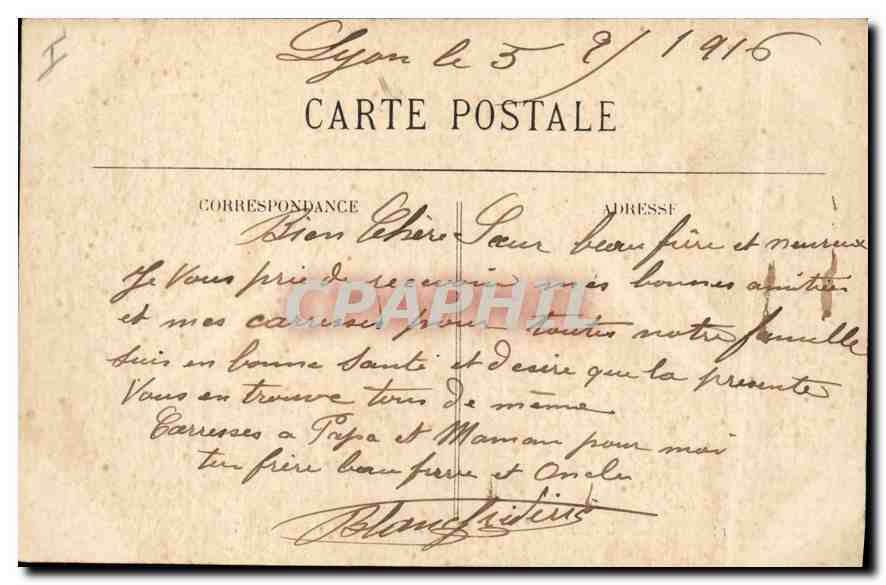 I
Lyon le 5 9/ 1916
CARTE POSTALE
CORRESPONDANCE
ADRESSE
Bien Chère Sœur beau frère et neuveux
Je Vous prie de recevoir mes bonnes amitiés
et mes carresses pour toutes notre famille
suis en bonne santé et desire que la presente
Vous en trouve tous de même
Carresses a Papa et Maman pour moi
ton frère beau frere et Oncle
Blanc Fréderic
CPAPHIL